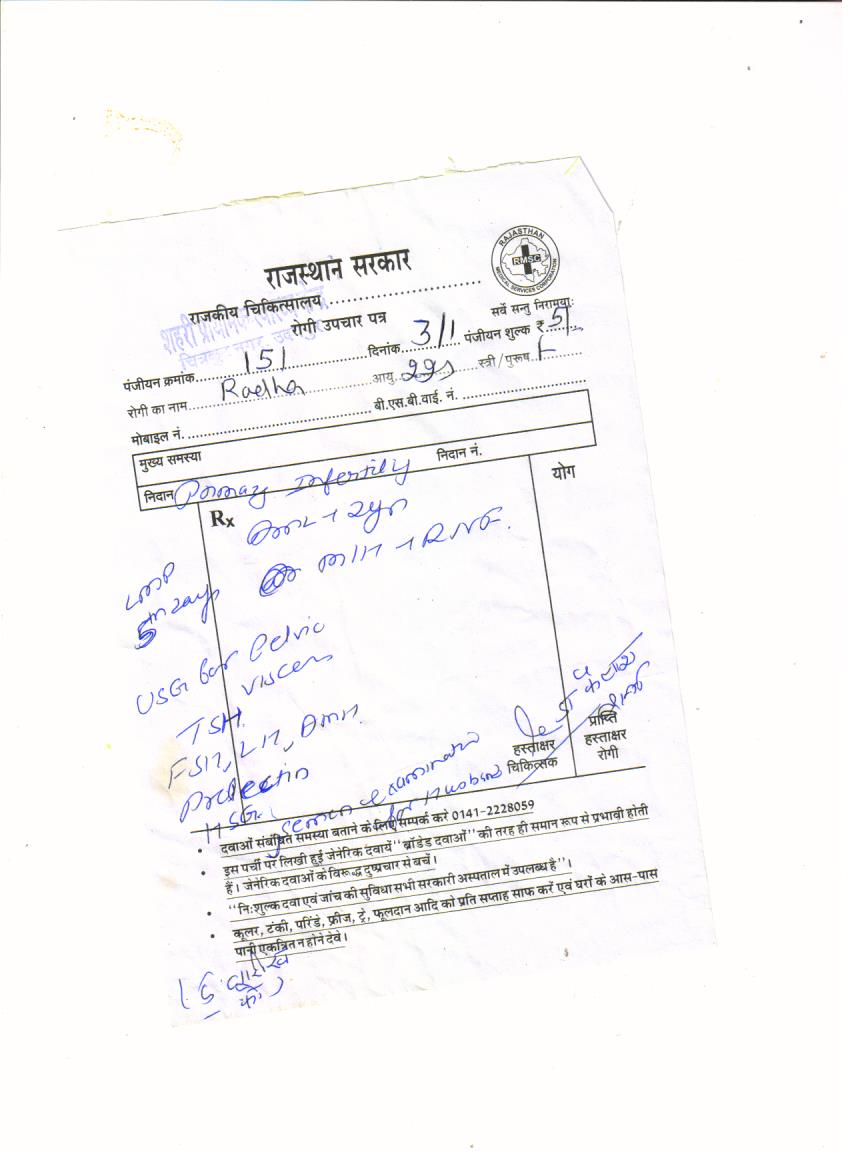 राजस्थान सरकार
RAJASTHAN
RMSC
MEDICAL SERVICES CORPORATION
राजकीय चिकित्सालय
सर्वे सन्तु निरामयाः
रोगी उपचार पत्र
पंजीयन क्रमांक 151 दिनांक 3/1 पंजीयन शुल्क ₹ 5/
रोगी का नाम Radha आयु 22y स्त्री/पुरूष F
मोबाइल नं. बी.एस.बी.वाई. नं.
मुख्य समस्या
निदान Primary Infertility निदान नं.
Rx
योग
LMP
USG for Pelvic
viscera
TSH
FSH, LH, AMH
Prolectin
HSG
semen examination
for Husband
हस्ताक्षर
चिकित्सक
प्राप्ति
हस्ताक्षर
रोगी
• दवाओं संबंधित समस्या बताने के लिए सम्पर्क करे 0141-2228059
• इस पर्ची पर लिखी हुई जेनेरिक दवायें "ब्रॉडेड दवाओं" की तरह ही समान रूप से प्रभावी होती
हैं। जेनेरिक दवाओं के विरूद्ध दुष्प्रचार से बचें।
• "निःशुल्क दवा एवं जांच की सुविधा सभी सरकारी अस्पताल में उपलब्ध है"।
• कूलर, टंकी, परिंडे, फ्रीज, ट्रे, फूलदान आदि को प्रति सप्ताह साफ करें एवं घरों के आस-पास
पानी एकत्रित न होने देवे।
तारीख
को)